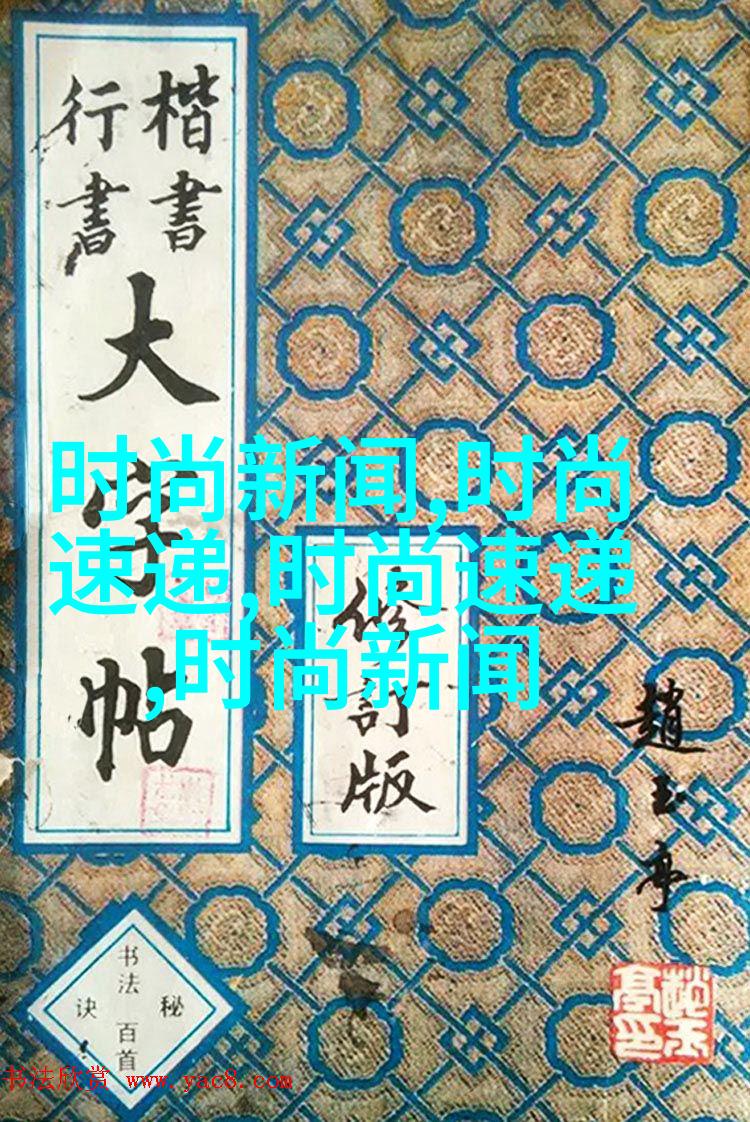 楷書
行書
大字帖
修訂版
趙玉亭
书法
秘诀
百首
时尚新闻,时尚
速递,时尚速递
,时尚新闻
书法欣赏 www.yac8.com